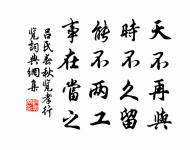 天不再與
時不久留
能不兩工
事在當之
呂氏春秋覽孝行
覽詞典網集